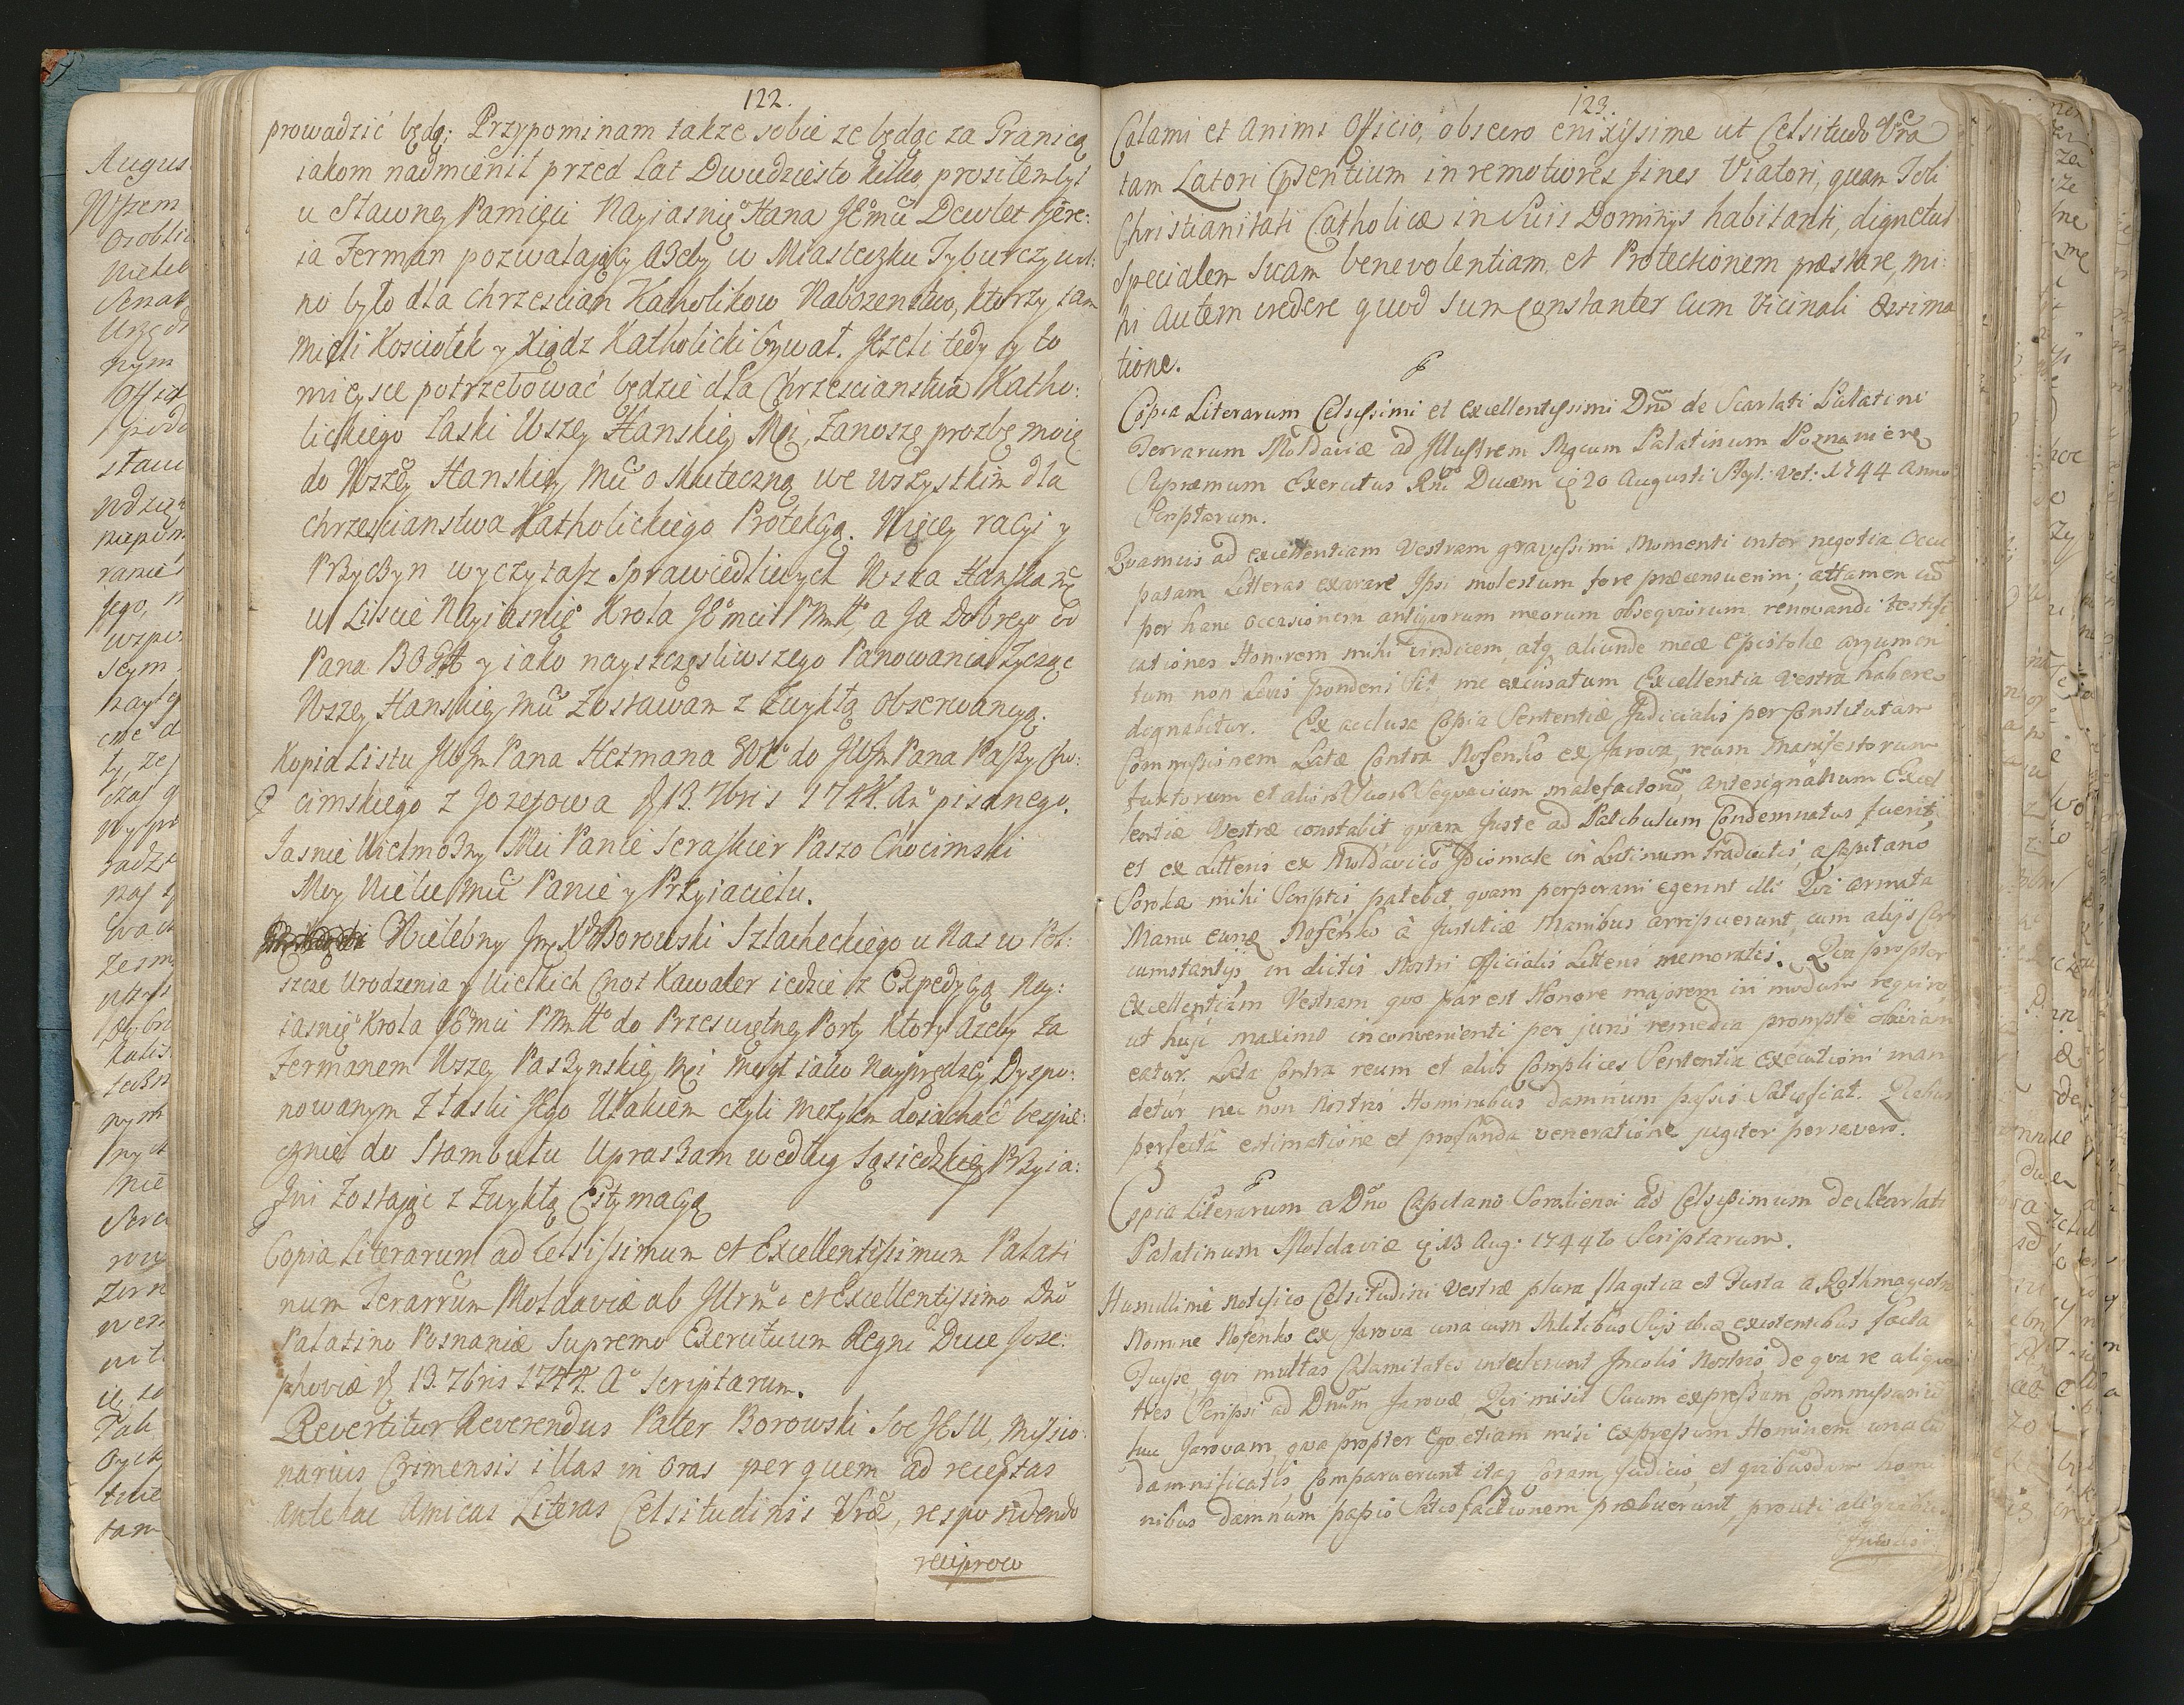 122.
prowadzić będą; Przypominam także sobie ze będąc za Granicą
iakom nadmienił przed lat Dwudziestu kilku, prosiłem był
u Sławney Pamięci Nayiasnię° Hana JE°mci Dewlet Gere:
ia Ferman pozwalaiący ażeby w Miasteczku Tyburczy wol:
no było dla chrzescian Katholikow Nabozenstwo, ktorzy tam
mieli Kosciołek y Xiądz Katholicki bywał. Jezeli tedy y to
mieysce potrzebować będzie dla Chrzescianstwa Katho:
lickiego łaski Wszey Hanskiey Mci, Zanoszę prozbę moię
do Wszey Hanskiey Mci o skuteczną we wszystkim dla
chrzescianstwa Katholickiego Protekcyą. Więcey racyi y
Przyczyn wyczytasz sprawiedliwych Wsza Hanska Mć
w Liscie Nayiasnię° Krola JE°mci PMM°, a Ja Dobrego od
Pana BOGA y iako nayszczęsliwszego Panowania życząc
Wszey Hanskiey Mci Zostawam z Zwykłą obserwancyą.
Kopia Listu JWJm Pana Hetmana WK° do JWJm Pana Paszy Cho:
cimskiego z Jozefowa d 13. 7bris 1744. An° pisanego.
Jasnie Wielmozny Mci Panie Seraskier Paszo Chocimski
Moy Wielce Mci Panie y Przyiacielu.
Wielebny Jmx Borowski Szlacheckiego u Nas w Pol:
szcze Urodzenia y Wielkich Cnot Kawaler iedzie z Expedycyą Nay:
iasnię° Krola JE°mci PMM° do Przeswietney Porty Ktory ażeby za
Fermanem Wszey Paszynskiey Mci mogł iako Nayprędzey Dyspo:
nowanym z łaski Jego Ułakiem czyli Mezylem dosiachać bespie:
cznie do Stambułu Upraszam według Sąsiedzkiey Przyia:
zni Zostaiąc z Zwykłą Estymacyą
Copia Literarum ad Celsissimum et Excellentissimum Palati
num Terarrum Moldaviæ ab Illrm° et Excellentissimo Dno
Palatino Posnaniæ Supremo Exercituum Regni Duce Jose:
phoviæ d 13. 7bris 1744. A° Scriptarum.
Revertitur Reverendus Pater Borowski Soc JESU, Missio:
narius Crimensis illas in oras per quem ad receptas
antehac Amicas Literas Celsitudinis Vræ, respondendo
reciproco
123.
Calami et Animi Officio, obsecro enixissime ut Celsitudo Vra
tam Latori præsentium in remotiores fines Viatori, quam Toti
Christianitati Catholicæ in Suis Dominijs habitanti, dignetur
specialem Suam benevolentiam et Protectionem præstare, mi
hi autem credere quod sum constanter cum Vicinali æstima
tione.
Copia Literarum Celsissimi et Excellentissimi Dni de Scarlati Palatini
Terrarum Moldaviæ ad Illustrem Mgcum Palatinum Poznaniens
Supremum Exercitus Rni Ducem d 20 Augusti Styl: Vet: 1744 Anno
Scriptarum.
Quamvis ad Excellentiam Vestram gravissimi Momenti inter negotia occu
patam Litteras exarare Ipsi molestum fore præcensuerim; attamen cum
per hanc occasionem antiquorum meorum obsequiorum, renovandi testifi
cationes Honorem mihi vindicem, atq aliunde meæ Epistolæ argumen
tum non Levis ponderis Sit, me excusatum Excellentia Vestra habere
dignabitur. Ex acclusa Copia Sententiæ Judicialis per Constitutam
Commissionem Latæ Contra Nosenko ex Jarova, reum manifestorum
furtorum et aliorum Suorum Sequacium malefactorum antesignanum Excel
lentiæ Vestræ constabit quam Juste ad Patibulum Condemnatus fuerit,
et ex Litteris ex Moldavico Idiomate in Latinum traductis, a Capitano
Sorokæ mihi Scriptis, patebit, quam perperam egerint illi Qui armata
Manu eundem Nosenko à Justitiæ Manibus arripuerunt, cum alijs Cir
cumstantijs in dictis Nostri Officialis Litteris memoratis. Qua propter
Excellentiam Vestram quo par est Honore majorem in modum requiro
ut hujc maximo inconvenienti per juris remedia prompte obviam
eatur. Lata Contra reum et alios Complices Sententia executioni man
detur nec non Nostris Hominibus damnum passis Satisfiat. Qui cum
perfecta estimatione et profunda veneratione jugiter persevero.
Copia Literarum a Dno Capitano Sorokiensi ad Celsissimum de Scarlati
Palatinum Moldaviæ d 13 Aug: 1744to Scriptarum.
Humillime Notifico Celsitudini Vestræ plura flagitia et Furta a Rothmagistro
Nomine Nosenko ex Jarova una cum Militibus Suis ibiq existentibus facta
Fuisse, qui multas Calamitates intulerunt Incolis Nostris, de qua re aliquo
ties Scripsi ad Dnum Jarovæ, Qui misit Suum expressum Commissarium
huc Jarovam, qua propter Ego etiam misi expressum Hominem una cum
damnificatis, Comparuerunt itaq Coram Judicio, et quibusdam homi
nibus damnum passis Satisfactionem præbuerunt, prouti aliquibus